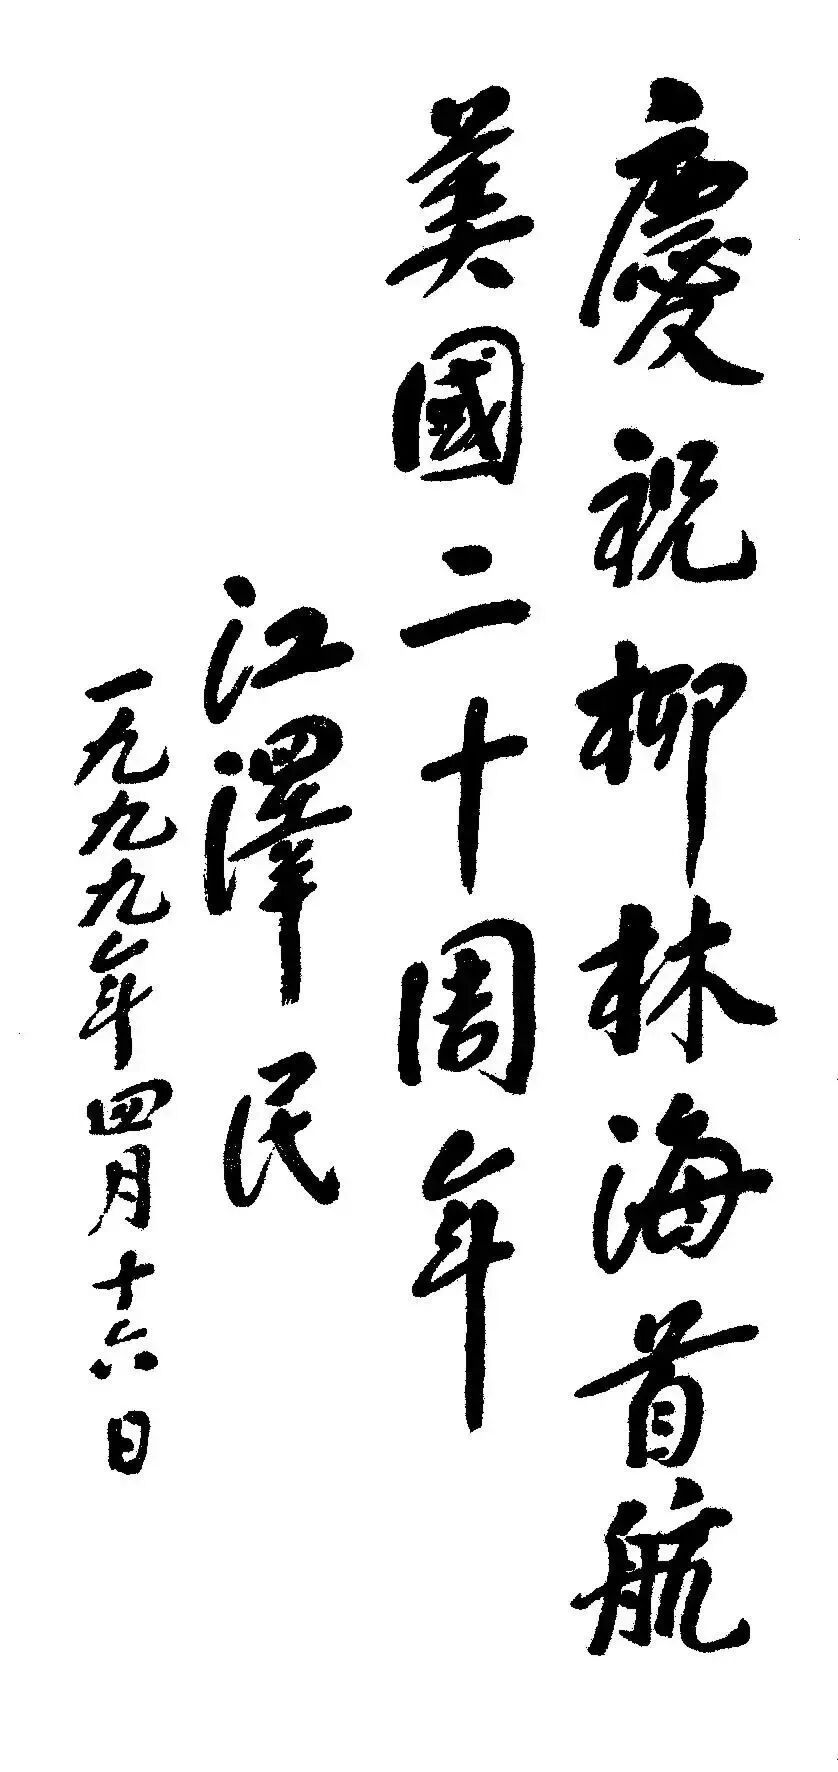 慶祝柳林海首航
美國二十周年
江澤民
一九九九年四月十六日